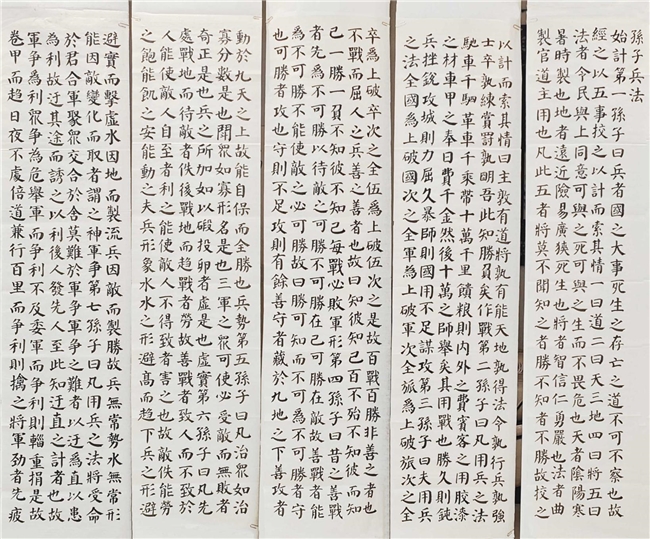 孫子兵法
始計第一孫子曰兵者國之大事死生之存亡之道不可不察也故
經之以五事校之以計而索其情一曰道二曰天三地四曰將五曰
法者令民與上同意可與之死可與之生而不畏危也天者陰陽寒
暑時製也地者遠近險易廣狹死生也將者智信仁勇嚴也法者曲
製官道主用也凡此五者將莫不聞知之者勝不知者不勝故校之
以計而索其情曰主孰有道將孰有能天地孰得法令孰行兵孰強
士卒孰練賞罰孰明吾此知勝負矣作戰第二孫子曰凡用兵之法
馳車千駟革車千乘帶十萬千里饋糧則內外之費賓客之用膠漆
之材車甲之奉日費千金然後十萬之師舉矣其用戰也勝久則鈍
兵挫銳攻城則力屈久暴師則國用不足謀攻第三孫子曰夫用兵
之法全國為上破國次之全軍為上破軍次全旅為上破旅次之全
卒為上破卒次之全伍為上破伍次之是故百戰百勝非善之者也
不戰而屈人之兵善之善者也故曰知彼知己百不殆不知彼而知
己一勝一負不知彼不知己每戰必敗軍形第四孫子曰昔之善戰
者先為不可勝以待敵之可勝不可勝在己可勝在敵故善戰者能
為不可勝不能使敵之必可勝故曰勝可知而不可為不可勝者守
也可勝者攻也守則不足攻則有餘善守者藏於九地之下善攻者
動於九天之上故能自保而全勝也兵勢第五孫子曰凡治眾如治
寡分數是也鬥眾如寡形名是也三軍之眾可使必受敵而無敗者
奇正是也兵之所加如以碫投卵者虛是也虛實第六孫子曰凡先
處戰地而待敵者佚後戰地而趨戰者勞故善戰者致人而不致於
人能使敵人自至者利之能使敵人不得至者害之也故敵佚能勞
之飽能飢之安能動之夫兵形象水水之形避高而趨下兵之形避
避實而擊虛水因地而製流兵因敵而製勝故兵無常勢水無常形
能因敵變化而取者謂之神軍爭第七孫子曰凡用兵之法將受命
於君合軍聚眾交合於舍莫難於軍爭軍爭之難者以迂為直以患
為利故迂其途而誘之以利後人發先人至此知迂直之計者也故
軍爭為利眾爭為危舉軍而爭利不及委軍而爭利則輜重捐是故
卷甲而趨日夜不處倍道兼行百里而爭利則擒之將軍勁者先疲